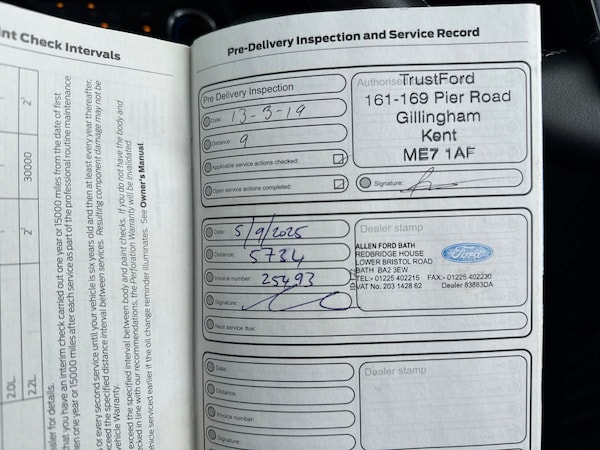 nt Check Intervals
2.0L
2.2L
30000
aler for details.
that you have an interim check carried out one year or 15000 miles from the date of first
en one year or 15000 miles after each service as part of the professional routine maintenance
s or every second service until your vehicle is six years old and then at least every year thereafter.
xceed the specified distance interval between services. Resulting component damage may not be
vehicle Warranty.
exceed the specified interval between body and paint checks. If you do not have the body and
cked in line with our recommendations, the Perforation Warranty will be invalidated.
hicle serviced earlier if the oil change reminder illuminates. See Owner's Manual.
Pre-Delivery Inspection and Service Record
Pre Delivery Inspection
Date: 13-3-19
Distance: 9
Applicable service actions checked:
Open service actions completed:
Authorise
TrustFord
161-169 Pier Road
Gillingham
Kent
ME7 1AF
Signature:
Date: 5/9/2025
Distance: 5734
Invoice number: 25493
Signature:
Next service due:
Dealer stamp
ALLEN FORD BATH
REDBRIDGE HOUSE
LOWER BRISTOL ROAD
BATH BA2 3EW
TEL:- 01225 402215 FAX:- 01225 402230
VAT No. 203 1428 62 Dealer 83883DA
Ford
Date:
Distance:
Invoice number:
Signature:
Dealer stamp